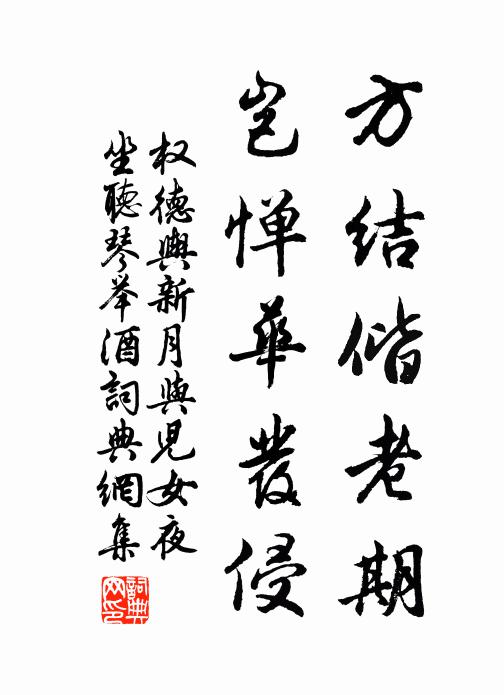 方结偕老期
岂惮华发侵
权德舆新月与儿女夜
坐听琴举酒词典網集
詞典網印